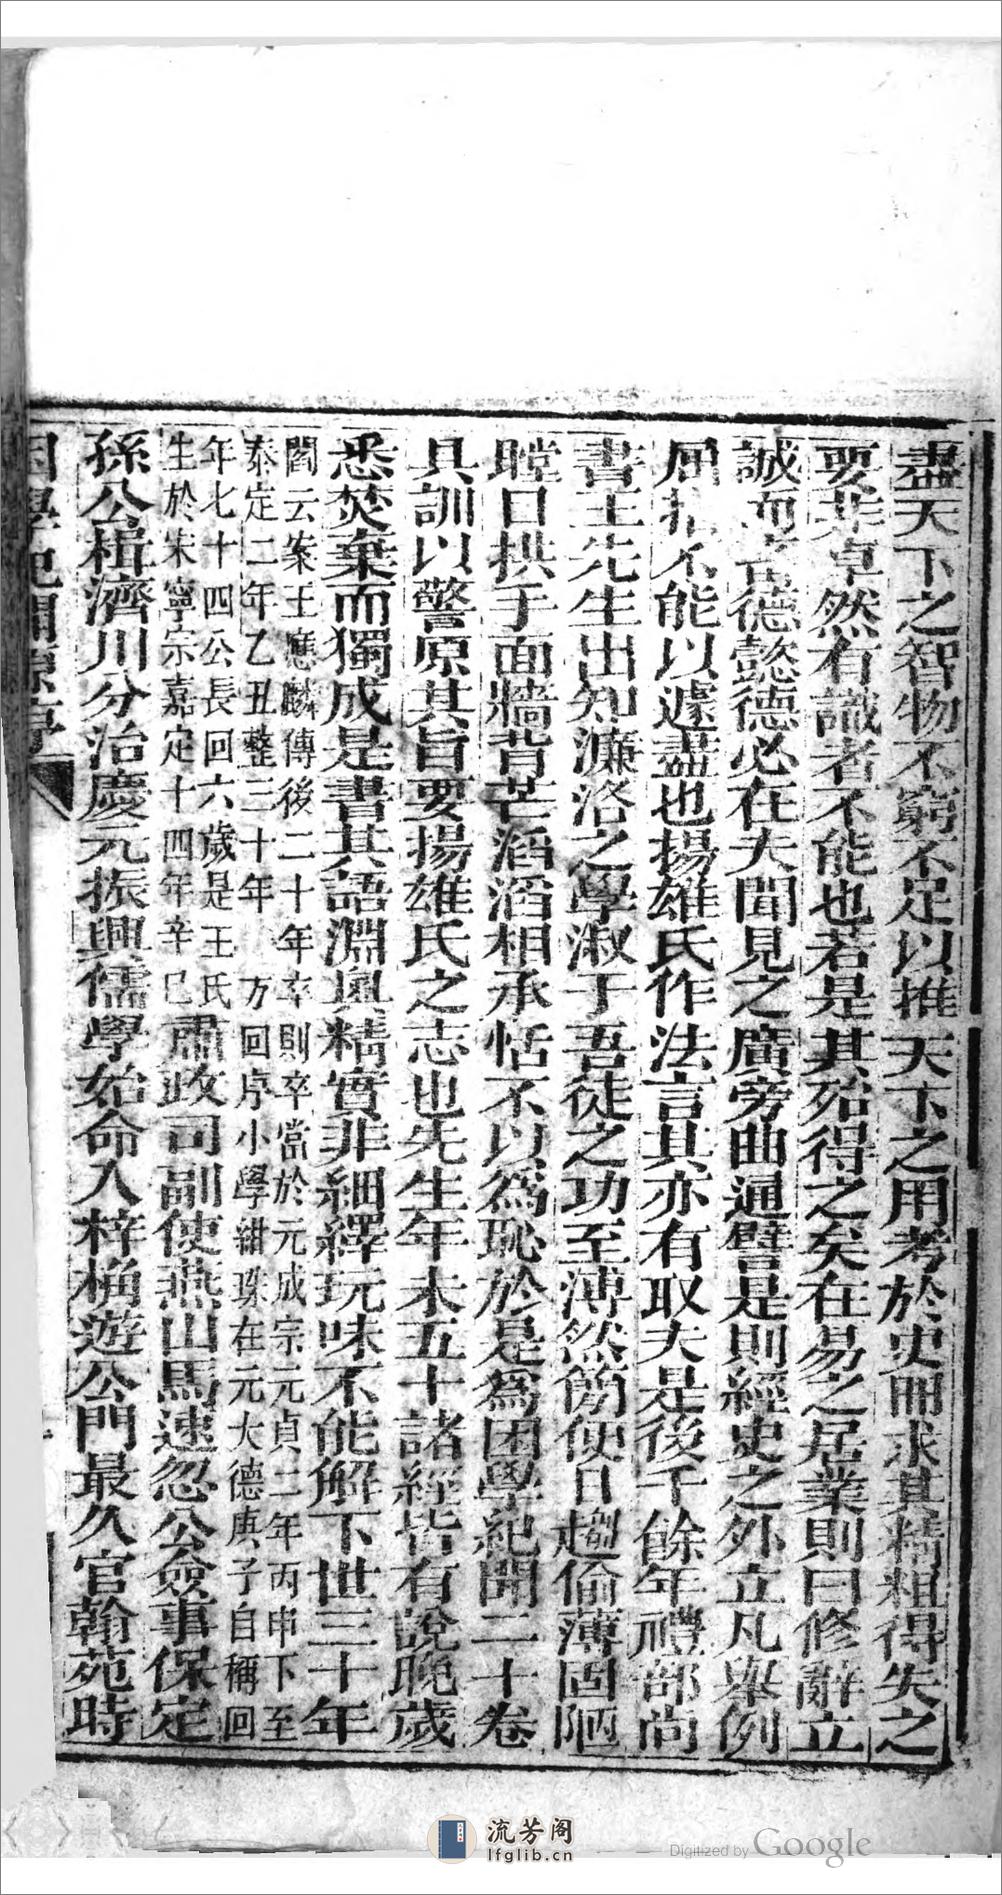 盡天下之智物不窮不足以推天下之用考於史冊求其精粗得失之
要非卓然有識者不能也若是其殆得之矣在易之居業則曰修辭立
誠而畜德懿德必在夫聞見之廣旁曲通譬是則經史之外立凡舉例
屈指不能以遽盡也揚雄氏作法言其亦有取夫是後千餘年禮部尚
書王先生出知濂洛之學淑于吾徒之功至溥然簡便日趨偷薄固陋
瞠目拱手面牆背芒滔滔相承恬不以為恥於是為困學紀聞二十卷
具訓以警原其旨要揚雄氏之志也先生年未五十諸經皆有說晚歲
悉焚棄而獨成是書其語淵奧精實非紬繹玩味不能解下世三十年
閻云案王應麟傳後二十年卒則卒當於元成宗元貞二年丙申下至
泰定二年乙丑整三十年 方回序小學紺珠在元大德庚子自稱回
年七十四公長回六歲是王氏
生於宋寧宗嘉定十四年辛巳肅政司副使燕山馬速忽公僉事保定
孫公楫濟川分治慶元振興儒學始命入梓桷遊公門最久官翰苑時
困學紀聞原序
流芳阁
lfglib.cn
Digitized by Google